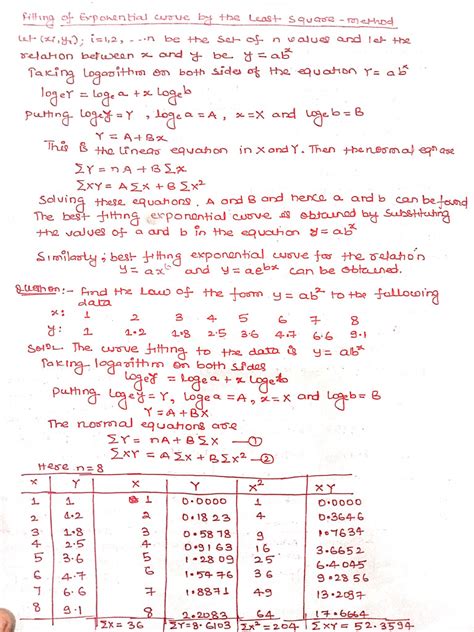 Fitting of Exponential curve by the Least Square-method
Let (xi, yi); i=1,2, ...n be the set of n values and let the
relation between x and y be y = ab^x
Taking logarithm on both sides of the equation Y = ab^x
logeY = logea + x logeb
putting logeY = Y, logea = A, x=X and logeb = B
Y = A+BX
This is the linear equation in X and Y. Then the normal eqn are
ΣY = nA + BΣX
ΣXY = AΣX + BΣX²
Solving these equations, A and B and hence a and b can be found
The best fitting exponential curve is obtained by substituting
the values of a and b in the equation y = ab^x
Similarly, best fitting exponential curve for the relation
y = ax^b and y = ae^bx can be obtained.
Question:- Find the Law of the form y = ab^x to the following
data
x: 1 2 3 4 5 6 7 8
y: 1 1.2 1.8 2.5 3.6 4.7 6.6 9.1
Soln. The curve fitting to the data is y = ab^x
Taking logarithm on both sides
logeY = logea + x logeb
Putting logeY = Y, logea = A, x = X and logeb = B
Y = A+BX
The normal equations are
ΣY = nA + BΣX —①
ΣXY = AΣX + BΣX² —②
Here n=8
X Y X Y X² XY
1 1 1 0.0000 1 0.0000
2 1.2 2 0.1823 4 0.3646
3 1.8 3 0.5878 9 1.7634
4 2.5 4 0.9163 16 3.6652
5 3.6 5 1.2809 25 6.4045
6 4.7 6 1.5476 36 9.2856
7 6.6 7 1.8871 49 13.2097
8 9.1 8 2.2083 64 17.6664
ΣX = 36 ΣY=9.6103 ΣX² = 204 ΣXY = 52.3594